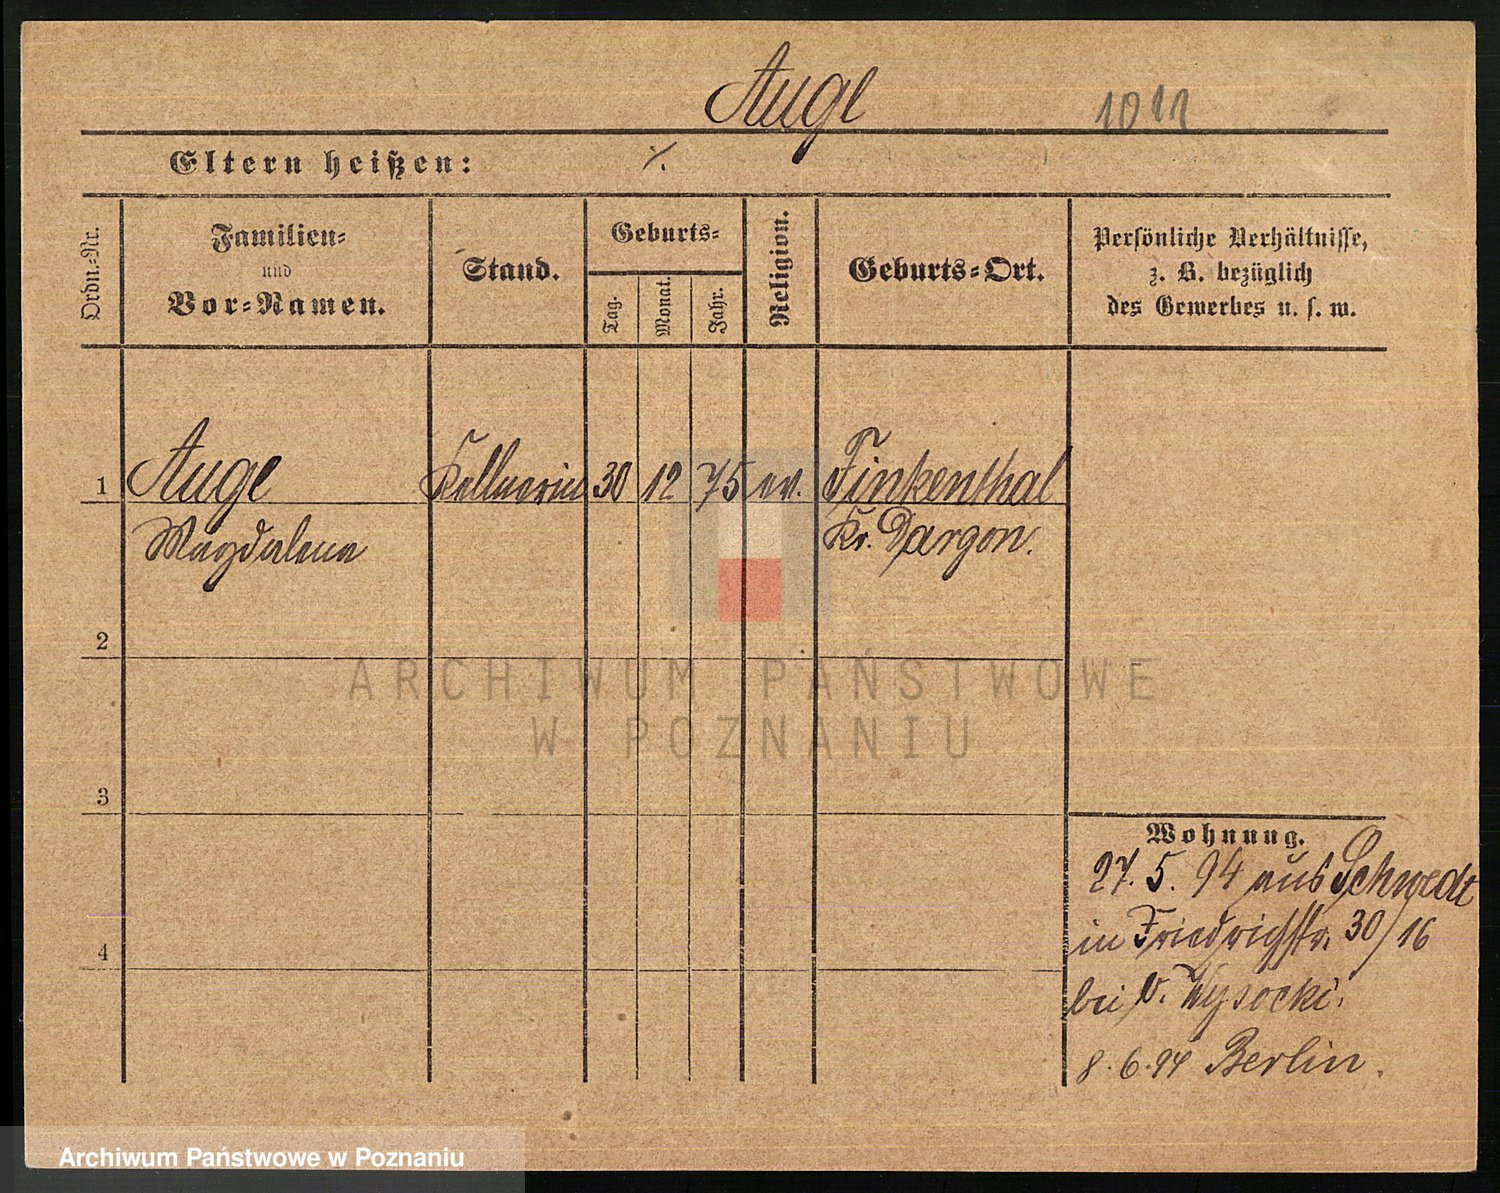 Auge 1011
Eltern heißen: ·/.
Ordn.-Nr.
Familien-
und
Vor-Namen.
Stand.
Geburts-
Tag.
Monat.
Jahr.
Religion.
Geburts-Ort.
Persönliche Verhältnisse,
z. B. bezüglich
des Gewerbes u. s. w.
1 Auge Kellnerin 30 12 75 ev. Finkenthal
Magdalena Kr. Dargon.
2
3
4
Wohnung.
27. 5. 94 aus Schwedt
in Friedrichstr. 30/16
bei v. Wysocki.
8. 6. 94 Berlin.
ARCHIWUM PAŃSTWOWE
W POZNANIU
Archiwum Państwowe w Poznaniu